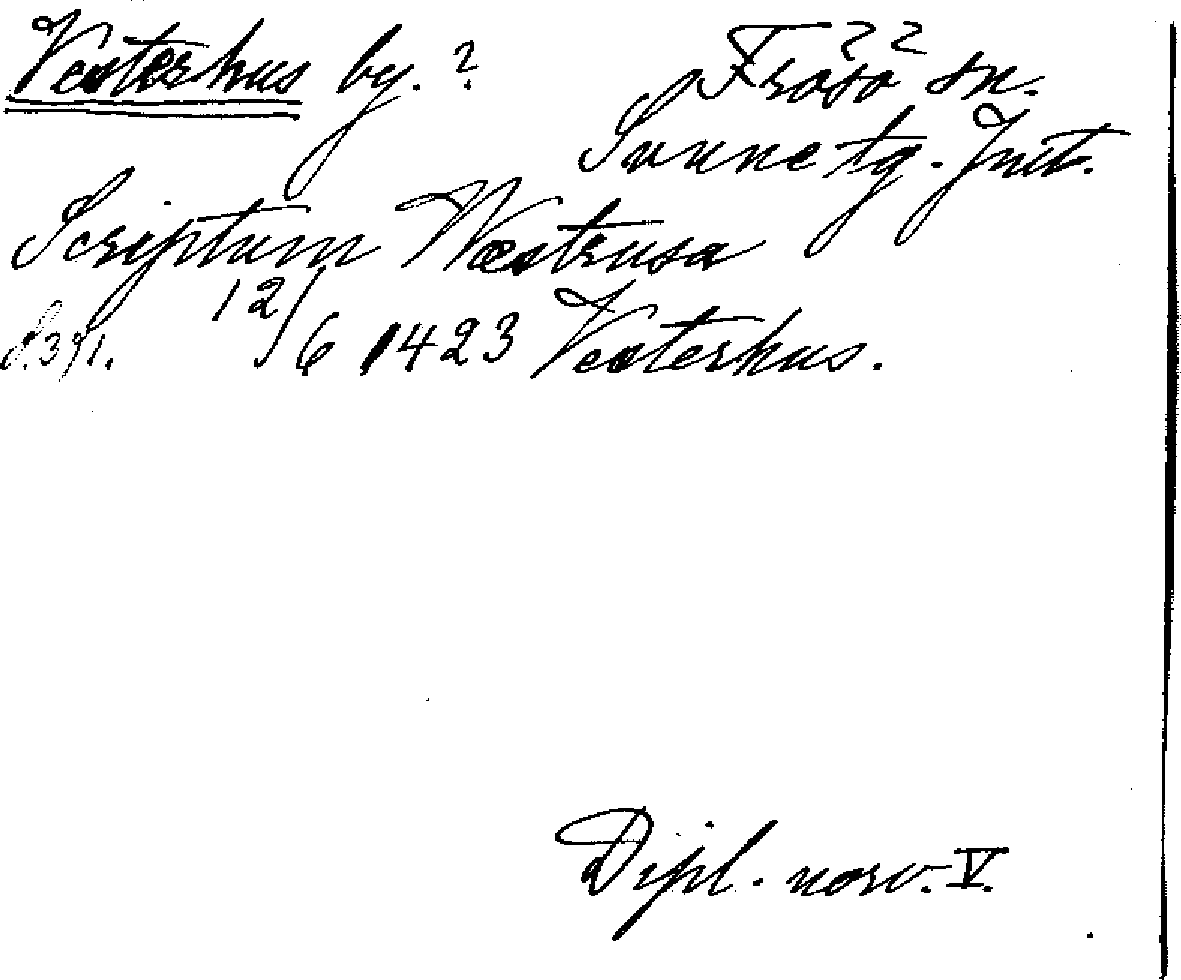 Vesterhus by. ? Frösö sn.
Sunne tg. Jmt.
Scriptum Wæstrusa
S. 391. 12/6 1423 Vesterhus.
Dipl. norv. V.